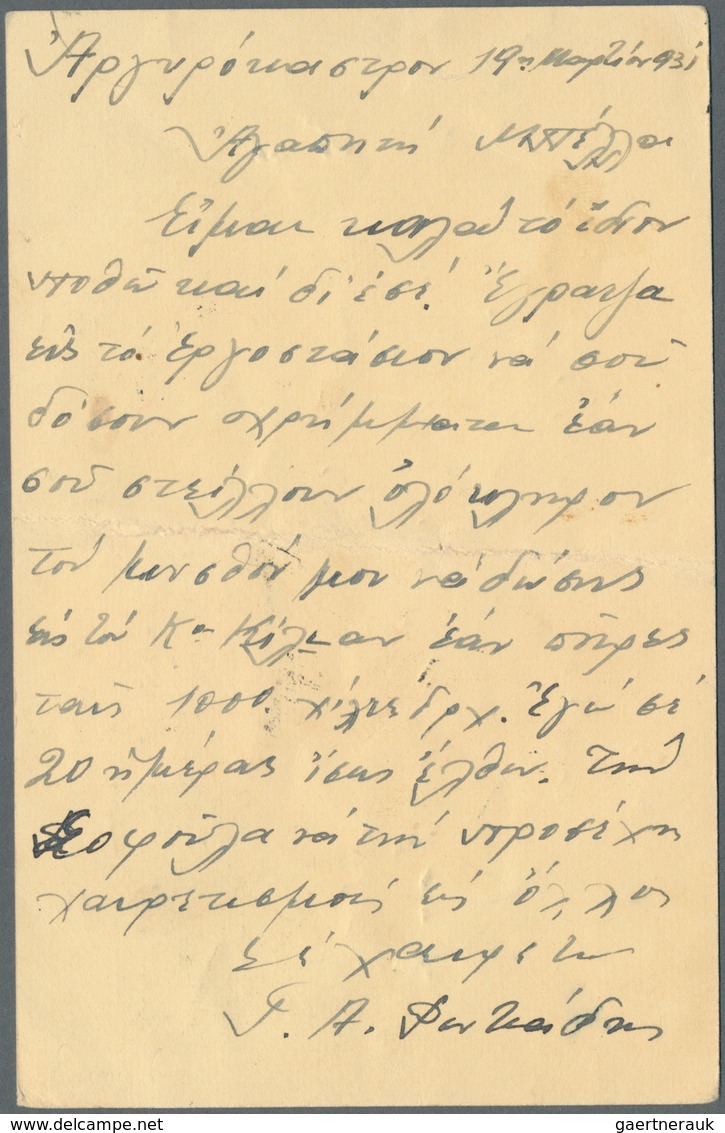 Ἀργυρόκαστρον 19η Μαρτίου 931
Ἀγαπητή Μπέλλα
Εἶμαι καλά τό ἴδιον
ποθῶ καί δι' ἐσέ. Ἔγραψα
εἰς τό Ἐργοστάσιον νά σοῦ
δόσουν χρήμματα ἐάν
σοῦ στείλλουν ὁλόκληρον
τόν μισθόν μου νά δώσης
εἰς τόν Κον ἐάν πῆρες
ταῖς 1000 χίλιες δρχ. Ἐγώ σέ
20 ἡμέρας ἴσως ἔλθω. Τήν
Σοφούλα νά τήν προσέχης
χαιρετισμούς εἰς ὅλλους
Σέ χαιρετῶ
Γ. Α. Φωτιάδης
gaertnerauk